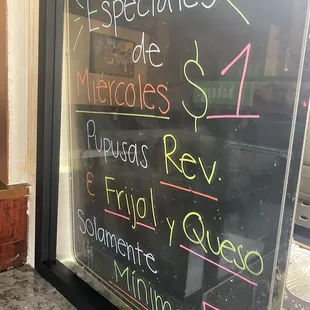 Especiales
de
Miércoles $1
Pupusas Rev.
É Frijol y Queso
Solamente